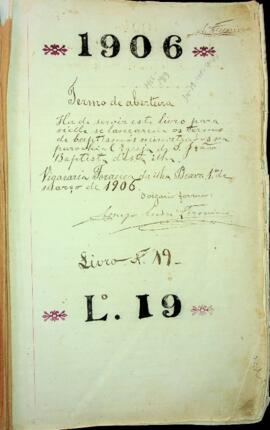 1906
Termo de abertura
Ha de servir este livro para
nelle se lançarem os termos
de baptismos ministrados na
parochial Egreja de S. João
Baptista d'esta ilha.
Vigararia Foranea da ilha Brava, 1º de
março de 1906.
Livro Nº 19
Lº. 19